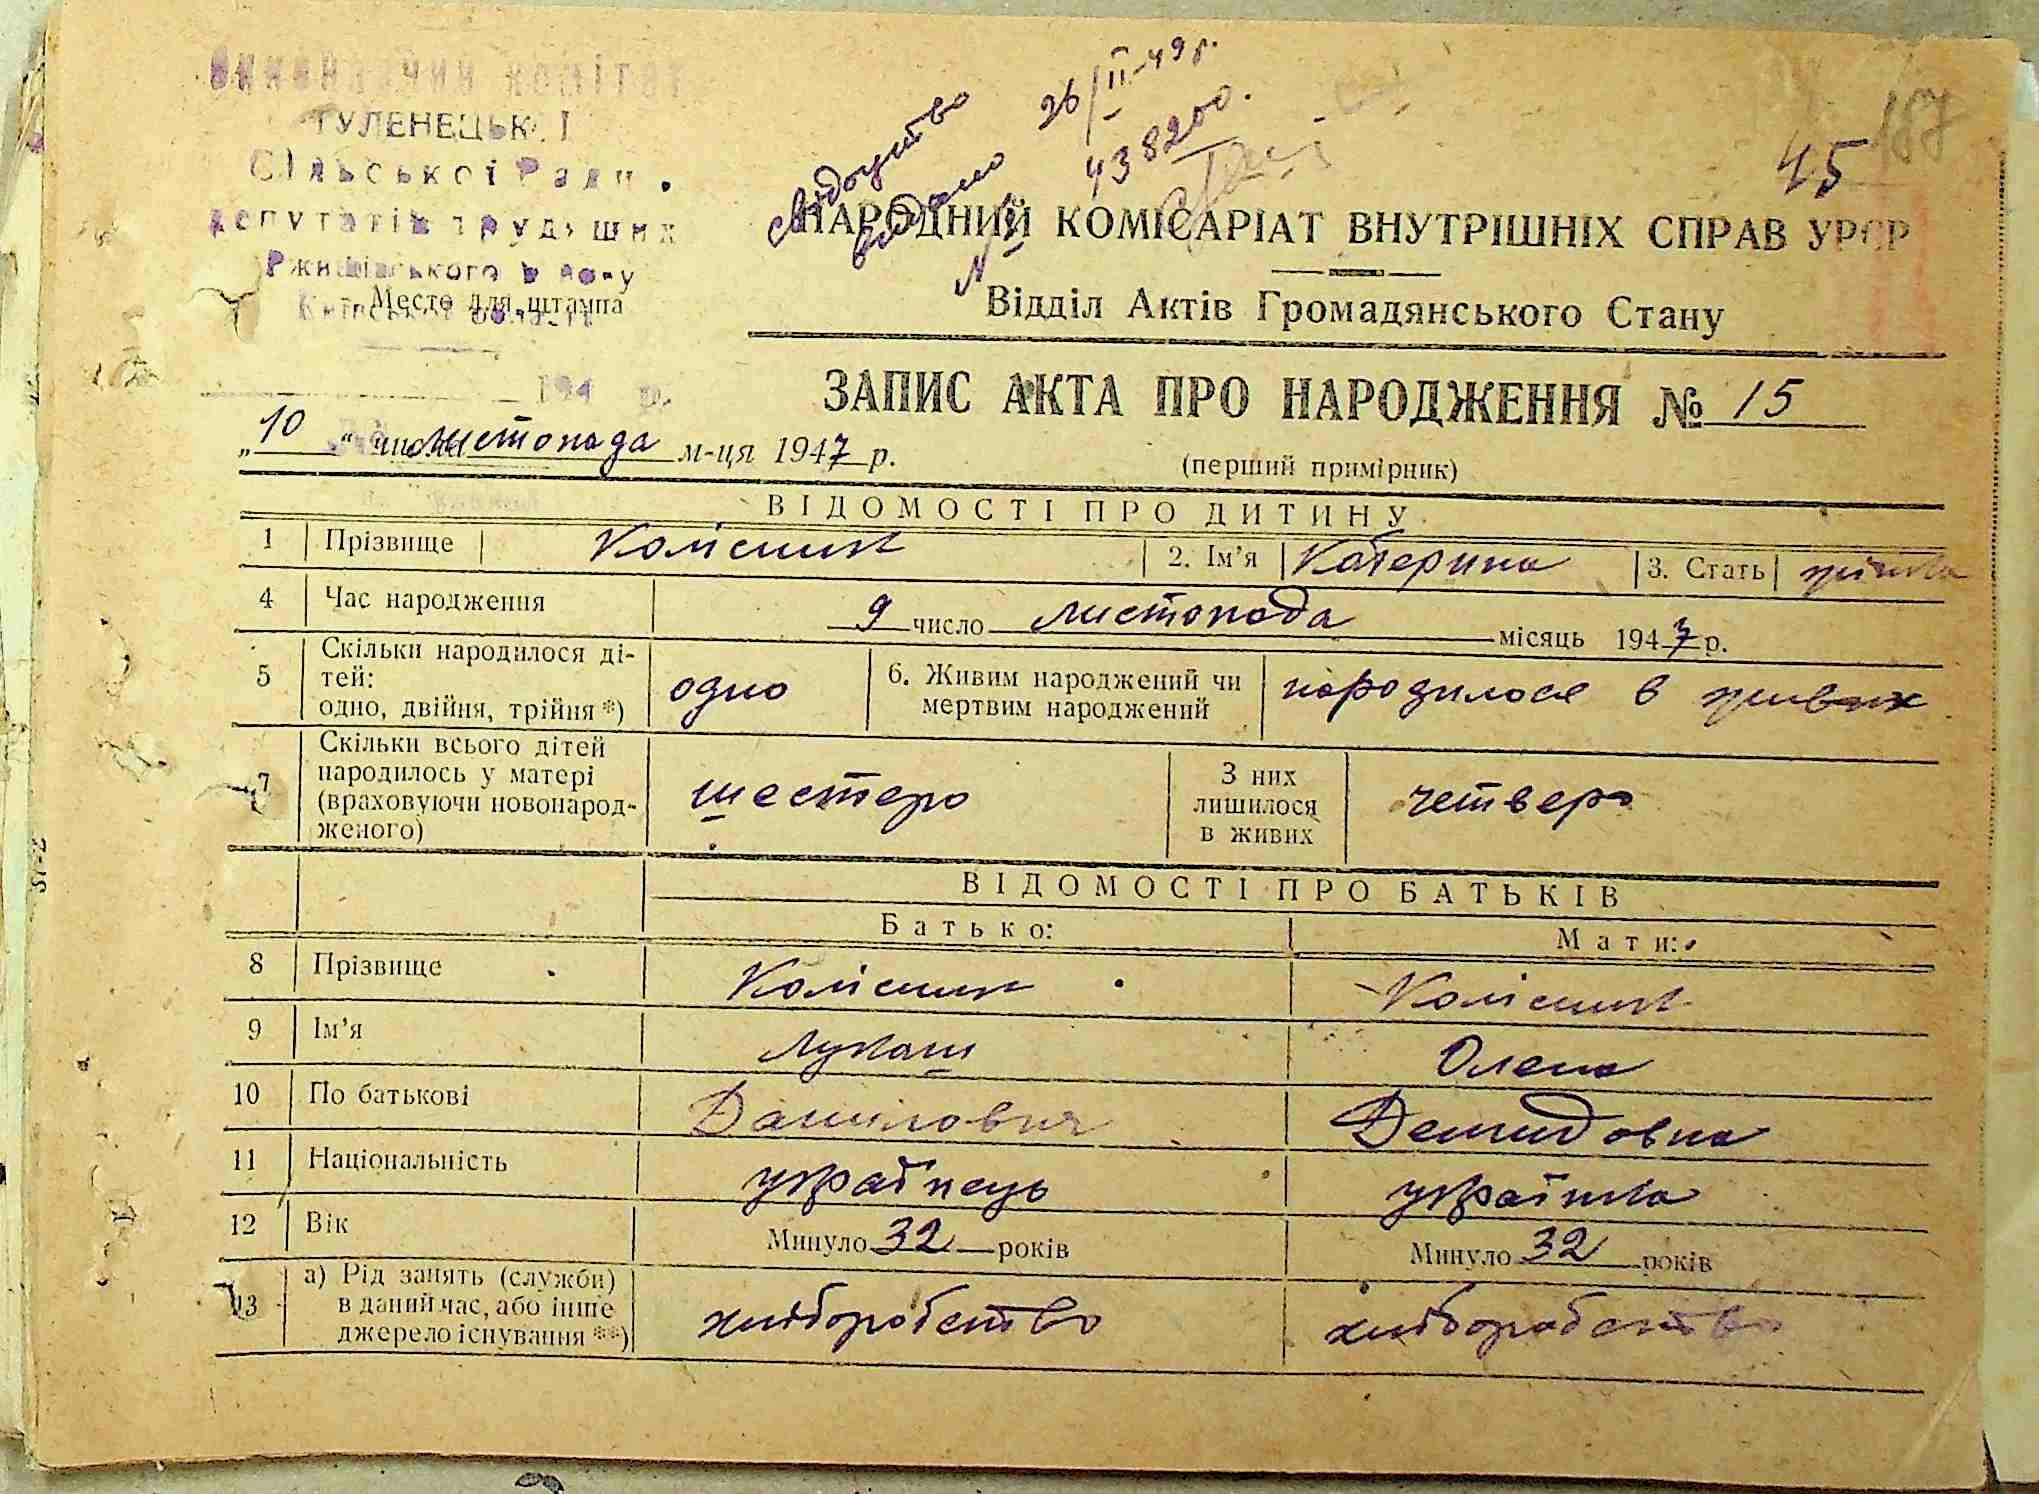 Виконавчий комітет
ТУЛЕНЕЦЬКІ
Сільської Ради
депутатів трудящих
Ржищівського р-ну
Київської
Место для штампа
194 р.
свідоцтво
видано
№
26/II-49 р.
438200.
45
187
НАРОДНИЙ КОМІСАРІАТ ВНУТРІШНІХ СПРАВ УРСР
Відділ Актів Громадянського Стану
ЗАПИС АКТА ПРО НАРОДЖЕННЯ № 15
„10“ числа листопада м-ця 1947 р.
(перший примірник)
ВІДОМОСТІ ПРО ДИТИНУ
1 Прізвище Колісник 2. Ім’я Катерина 3. Стать жінка
4 Час народження 9 число листопада місяць 1947 р.
5 Скільки народилося ді-
тей:
одно, двійня, трійня *) одно 6. Живим народжений чи
мертвим народжений народилося в живих
7 Скільки всього дітей
народилось у матері
(враховуючи новонарод-
женого) шестеро З них
лишилося
в живих четверо
ВІДОМОСТІ ПРО БАТЬКІВ
Батько: Мати:
8 Прізвище Колісник Колісник
9 Ім’я Лукаш Олена
10 По батькові Данилович Демидовна
11 Національність українець українка
12 Вік Минуло 32 років Минуло 32 років
13 а) Рід занять (служби)
в даний час, або інше
джерело існування **) хліборобство хліборобство